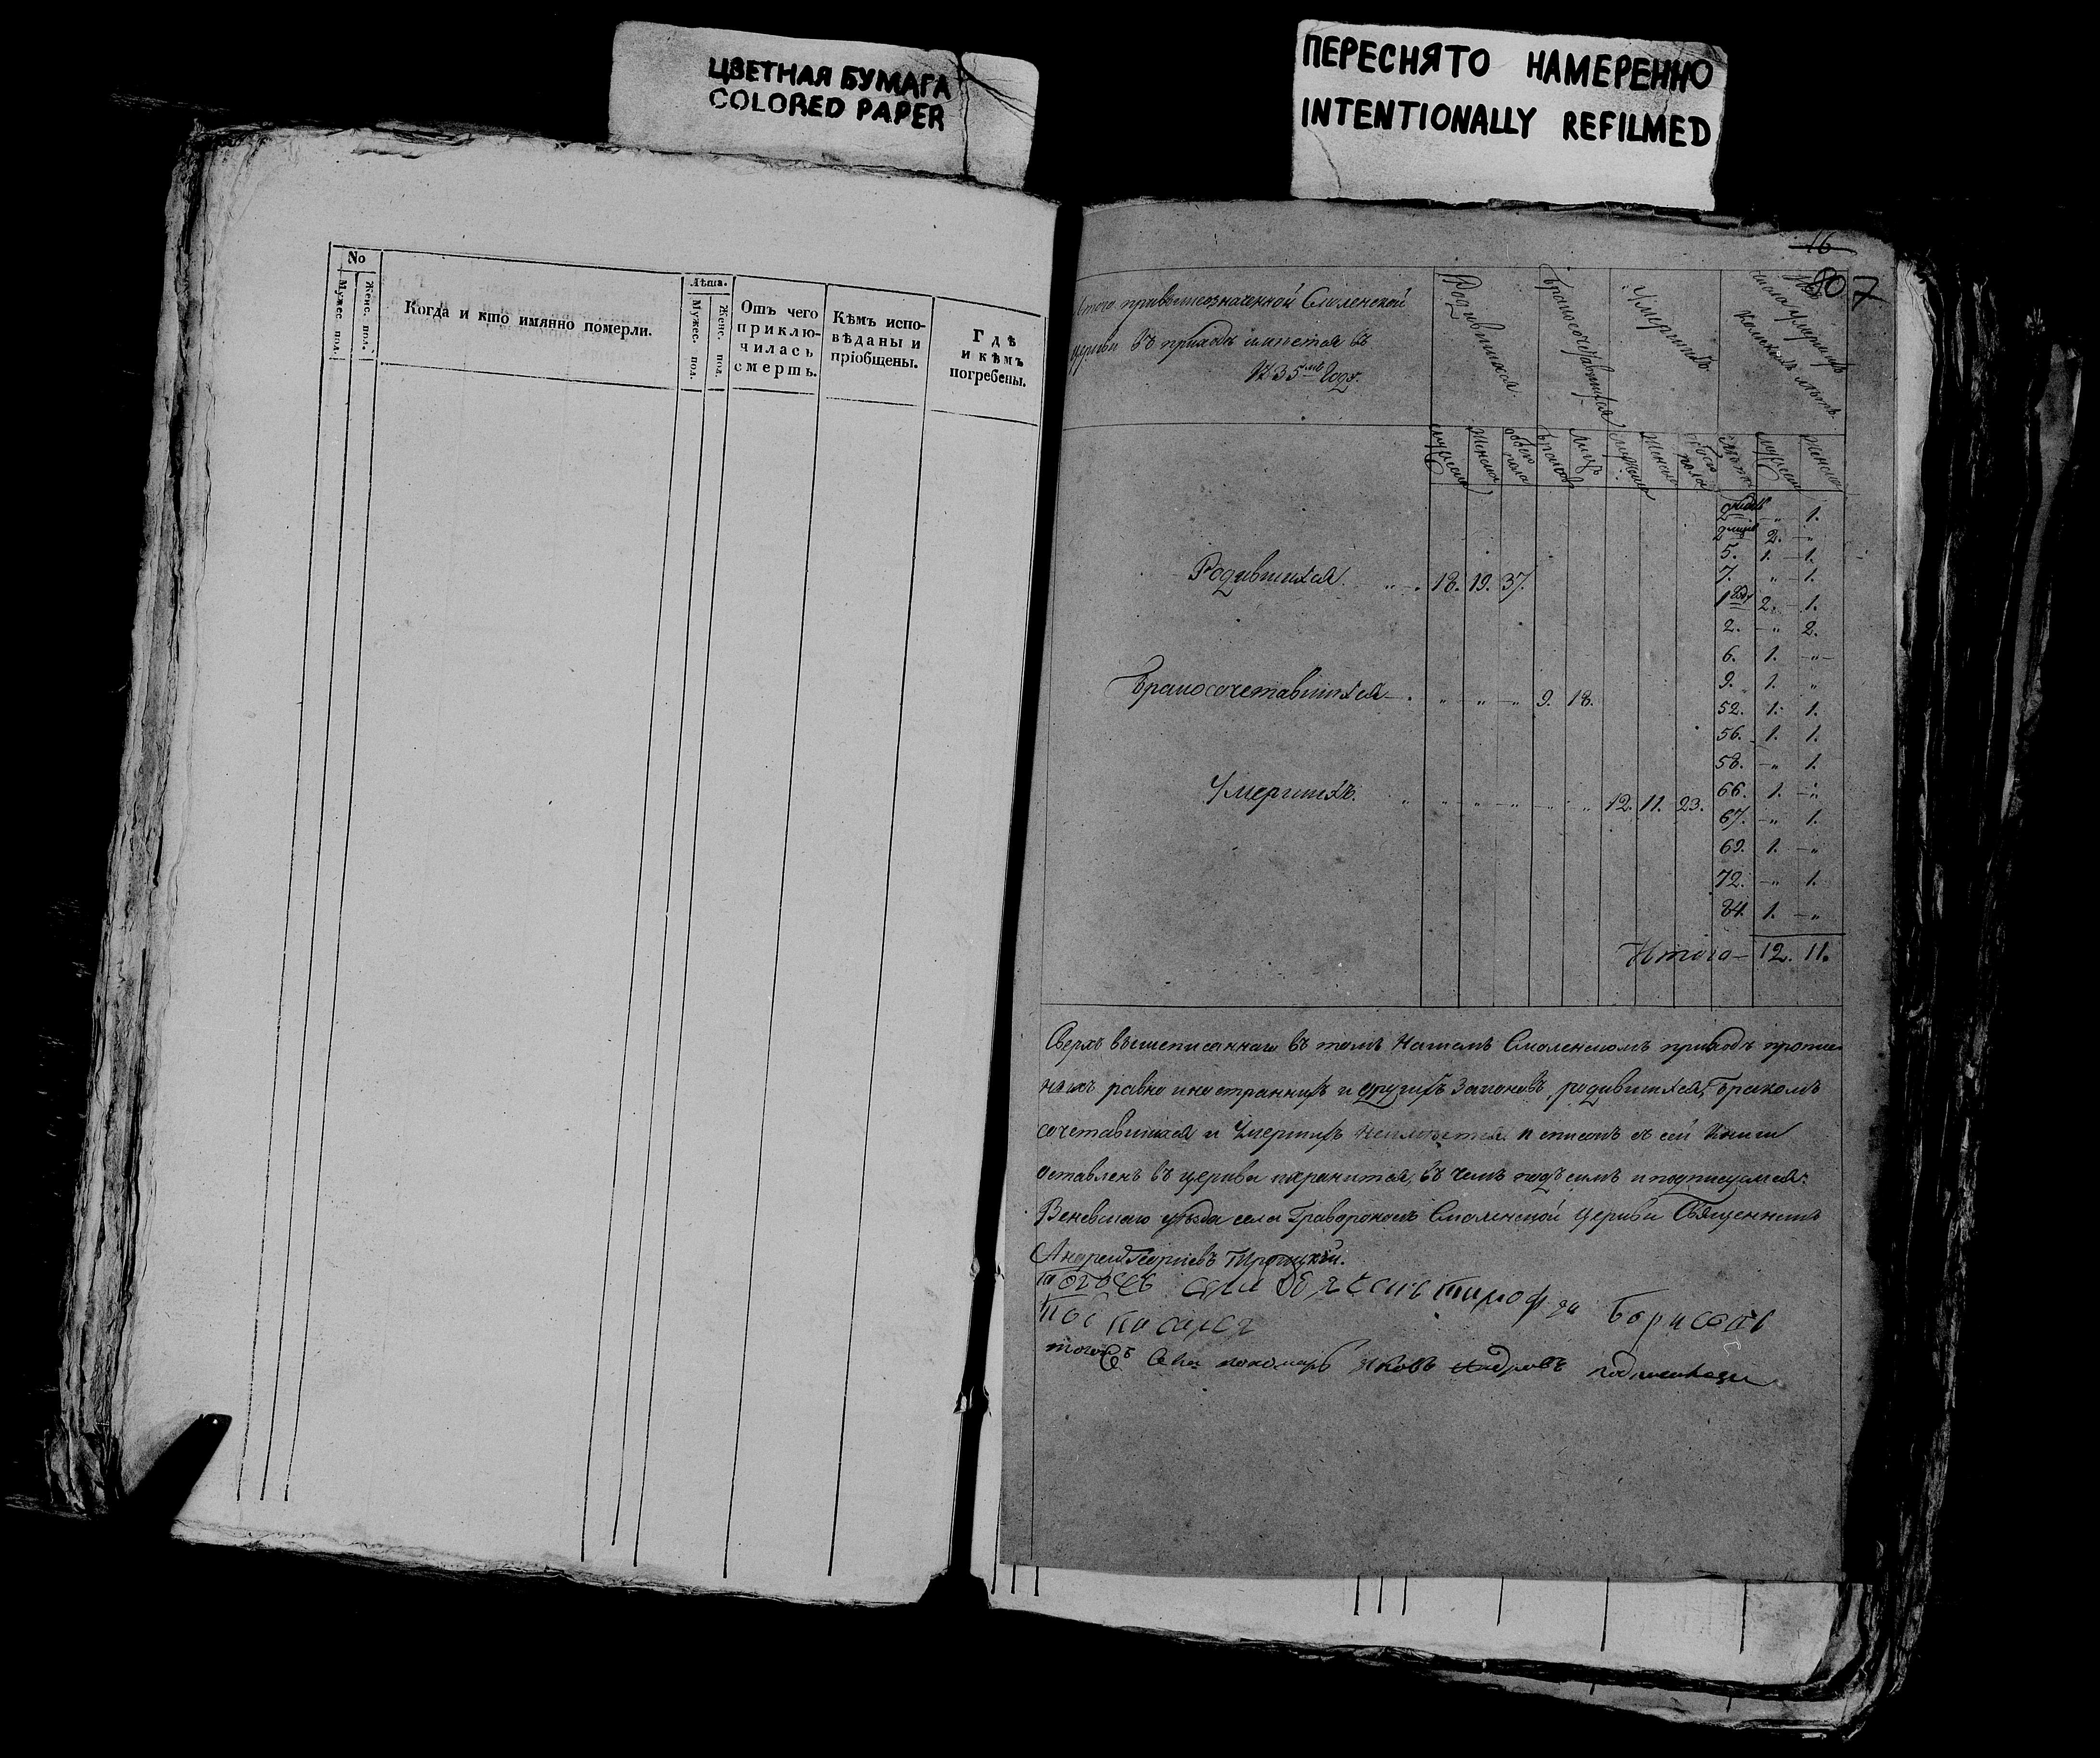 ЦВЕТНАЯ БУМАГА
COLORED PAPER
ПЕРЕСНЯТО НАМЕРЕННО
INTENTIONALLY REFILMED
No
Мужес. пол.
Женс. пол.
Когда и кто имянно померли.
Лѣта.
Мужес. пол.
Женс. пол.
Отъ чего
приклю-
чилась
смерть.
Кѣмъ испо-
вѣданы и
пріобщены.
Гдѣ
и кѣмъ
погребены.
16
807
Итого при вышеозначенной Смоленской
церкви въ приходѣ имѣется въ
1835мъ Году.
Родившихся
Бракосочетавшихся
Умершихъ
числа умершихъ
коликихъ лѣтъ
мужска
женска
обоего пола
браковъ
лицъ
мужска
женска
обоего пола
лѣта
мужска
женска
2 „ 1.
2 2. „
5. 1. 1.
7. „ 1.
Родившихся 18. 19. 37.
1 году 2. 1.
2. „ 2.
6. 1. „
9. 1. „
Бракосочетавшихся „ „ „ 9. 18.
52. 1. 1.
56. 1. 1.
58. „ 1.
66. 1. „
Умершихъ „ „ „ „ „ „ 12. 11. 23.
67. „ 1.
69. 1. „
72. „ 1.
84. 1. „
Итого 12. 11.
Сверхъ вышеписаннаго въ томъ нашемъ Смоленскомъ приходѣ
равно иностранныхъ и другихъ законовъ, родившихся, бракомъ
сочетавшихся и умершихъ неимѣется и списокъ съ сей книги
оставленъ въ церкви и хранится, въ чемъ подъ симъ и подписуемся:
Веневскаго уѣзда села Граворонокъ Смоленской церкви Священникъ
Андрей Георгіевъ Троицкій.
тогожъ села Тимофѣй Борисовъ
тогожъ села пономарь Яковъ